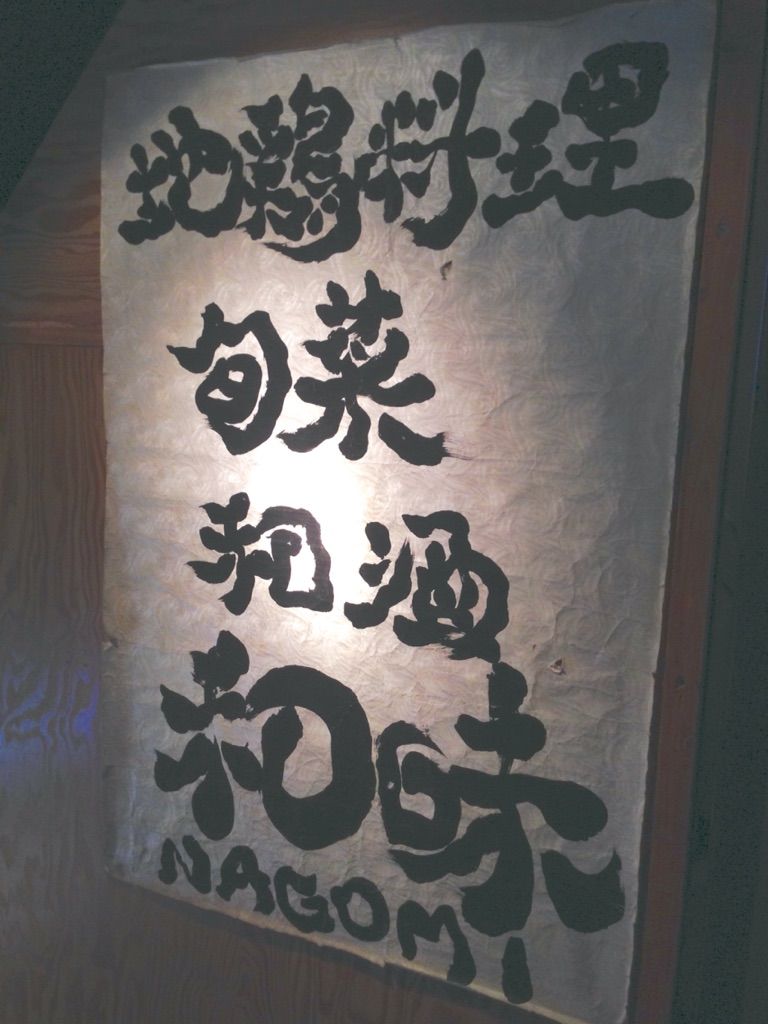 地鶏料理
旬菜
和酒
和味
NAGOMI